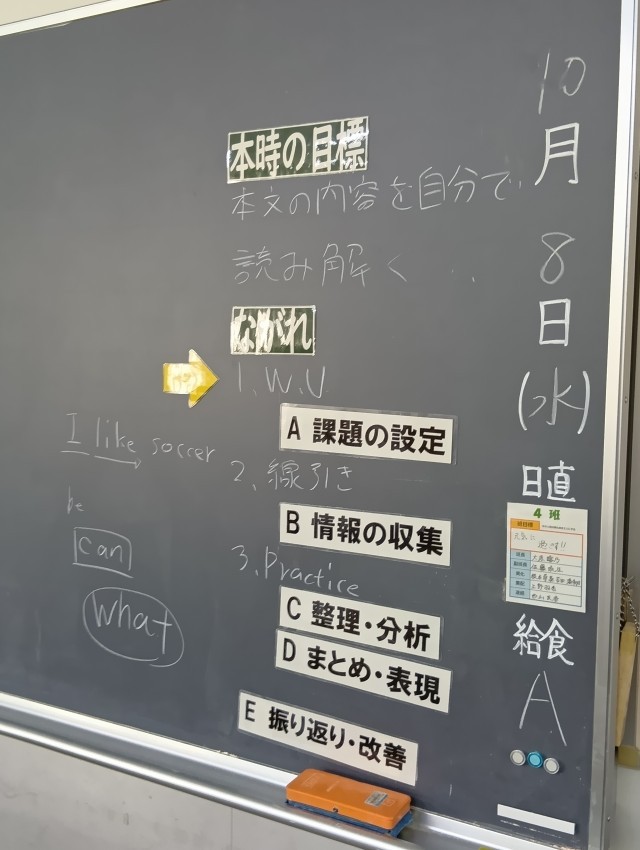 10
月
8
日
(水)
日直
4班
給食
A
本時の目標
本文の内容を自分で
読み解く
ながれ
1、W、U
A 課題の設定
2、線引き
B 情報の収集
3、Practice
C 整理・分析
D まとめ・表現
E 振り返り・改善
I like soccer
be
can
what